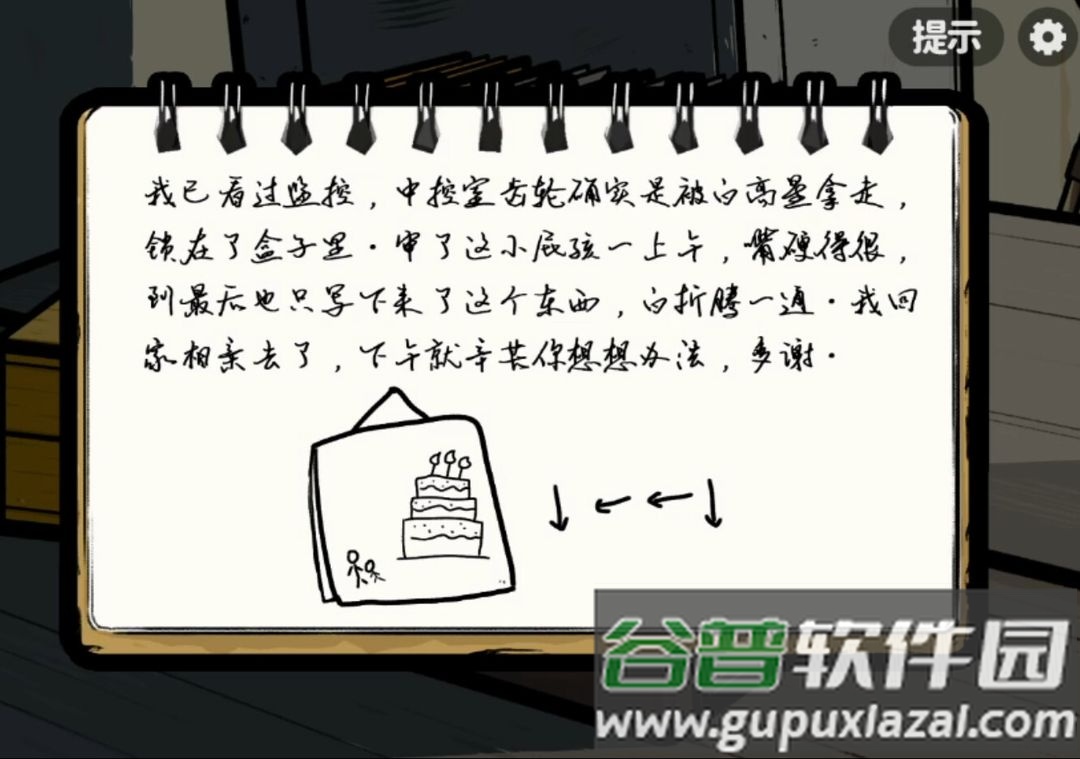 提示
我已看过监控，中控室齿轮确实是被白高星拿走，
锁在了盒子里．审了这小屁孩一上午，嘴硬得很，
到最后也只写下来了这个东西，白折腾一通．我回
家相亲去了，下午就辛苦你想想办法，多谢．
↓ ← ← ↓
谷普软件园
www.gupuxlazal.com